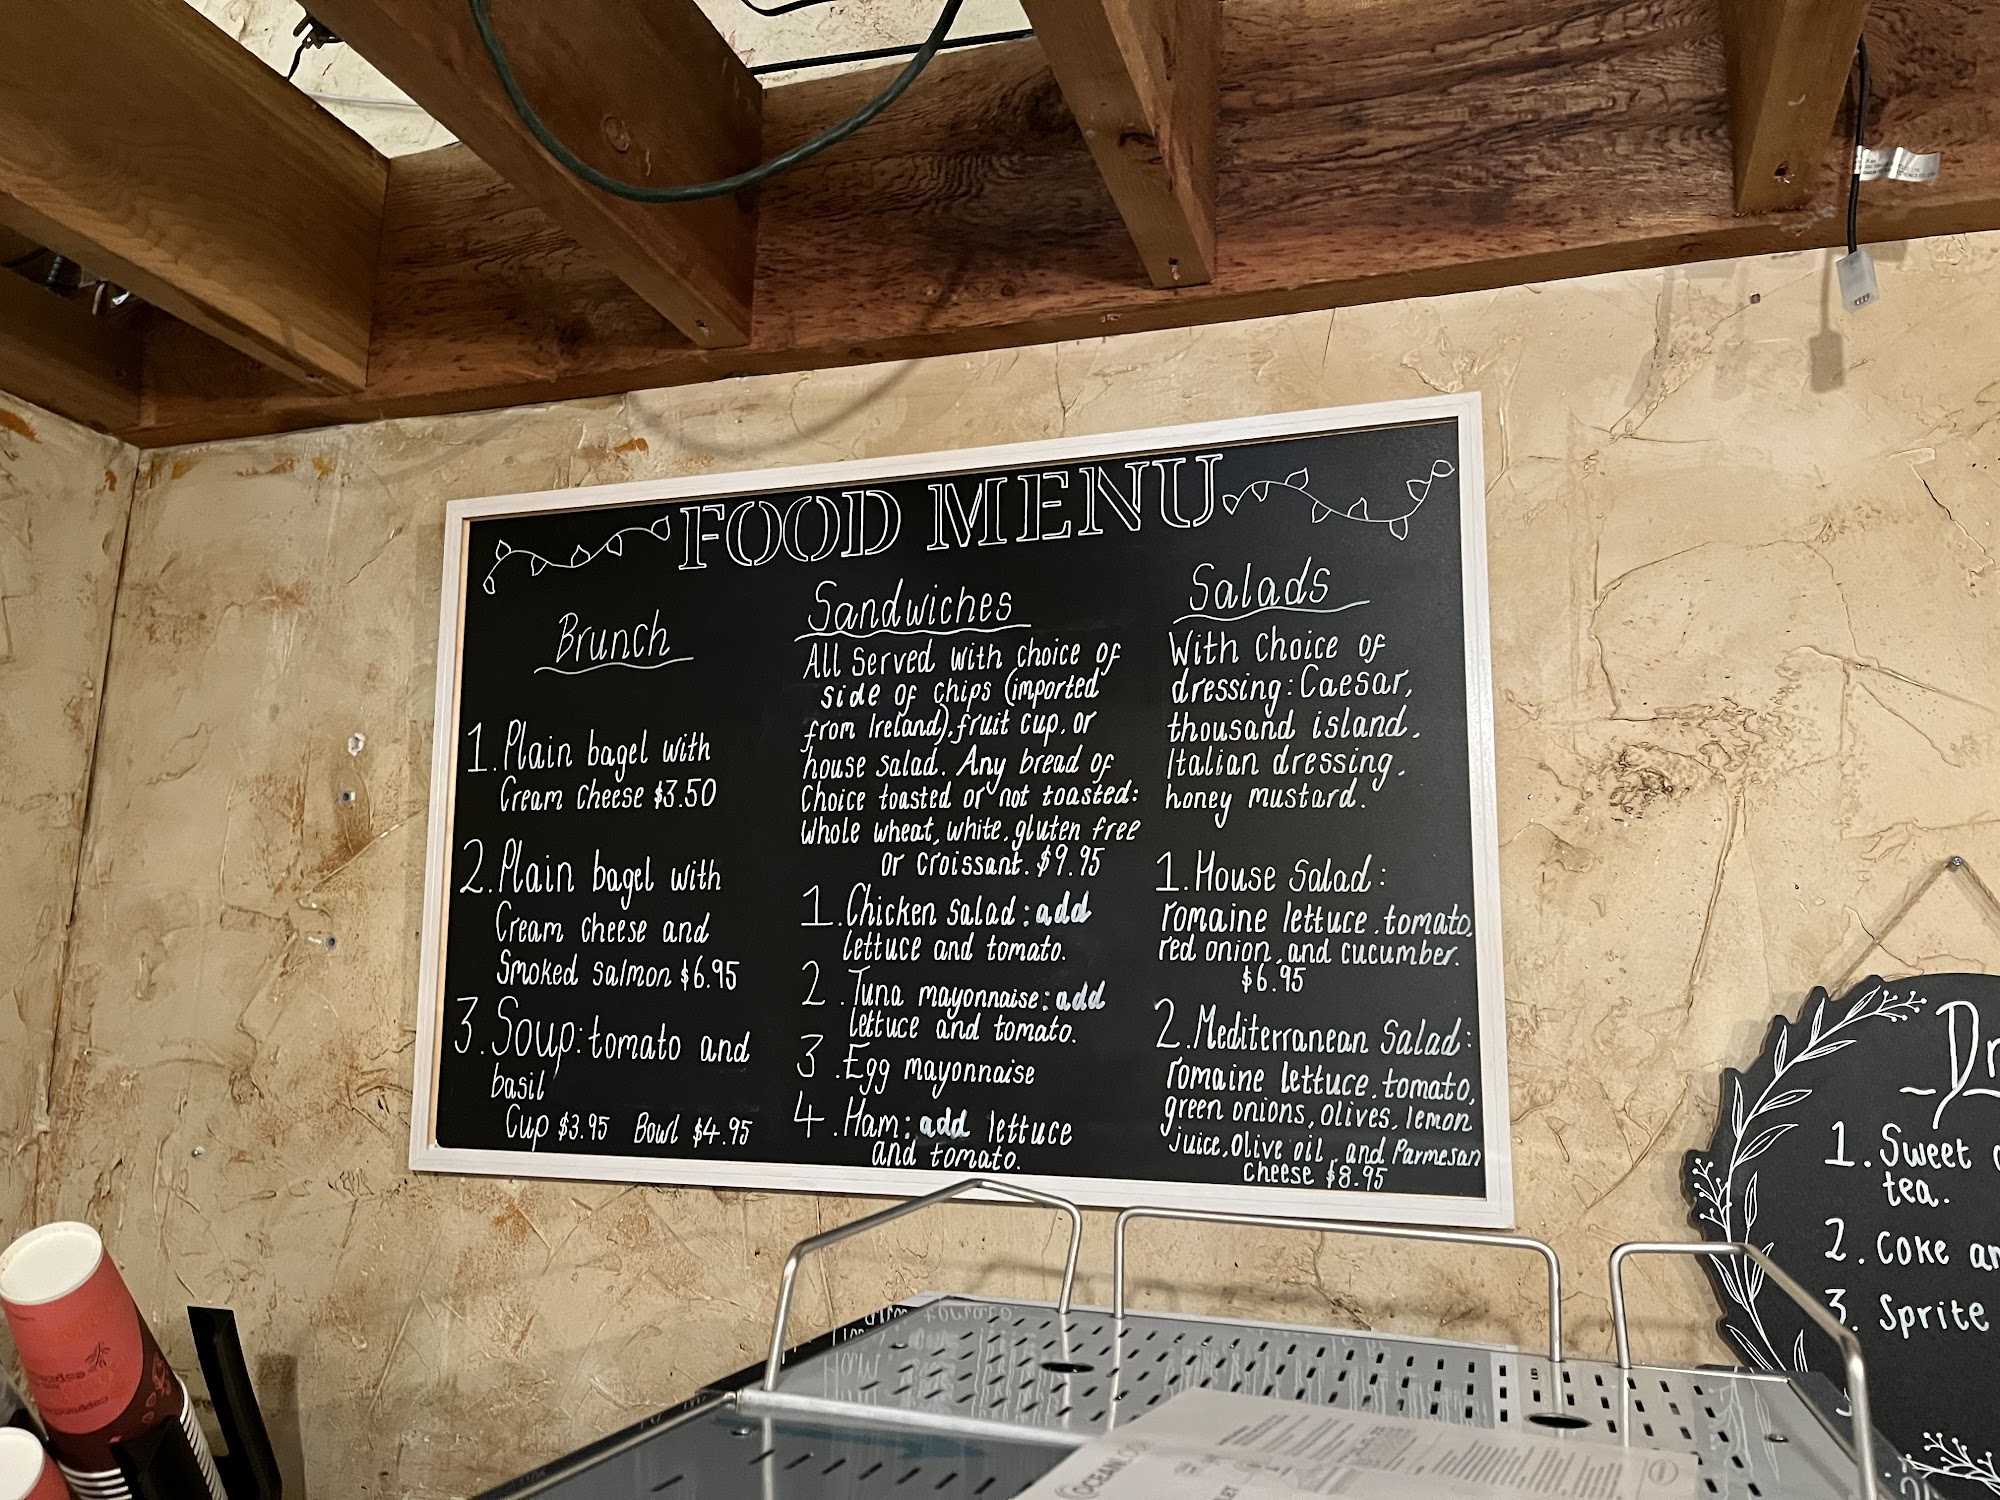 FOOD MENU
Brunch
1. Plain bagel with
Cream cheese $3.50
2. Plain bagel with
Cream cheese and
Smoked salmon $6.95
3. Soup: tomato and
basil
Cup $3.95 Bowl $4.95
Sandwiches
All Served with choice of
side of chips (imported
from Ireland), fruit cup, or
house salad. Any bread of
Choice toasted or not toasted:
Whole wheat, white, gluten free
or croissant. $9.95
1. Chicken Salad: add
lettuce and tomato.
2. Tuna mayonnaise: add
lettuce and tomato.
3. Egg mayonnaise
4. Ham: add lettuce
and tomato.
Salads
With Choice of
dressing: Caesar,
thousand island,
Italian dressing,
honey mustard.
1. House Salad:
romaine lettuce, tomato,
red onion, and cucumber.
$6.95
2. Mediterranean Salad:
romaine lettuce, tomato,
green onions, olives, lemon
juice, Olive oil, and Parmesan
cheese $8.95
1. Sweet
tea.
2. Coke
3. Sprite